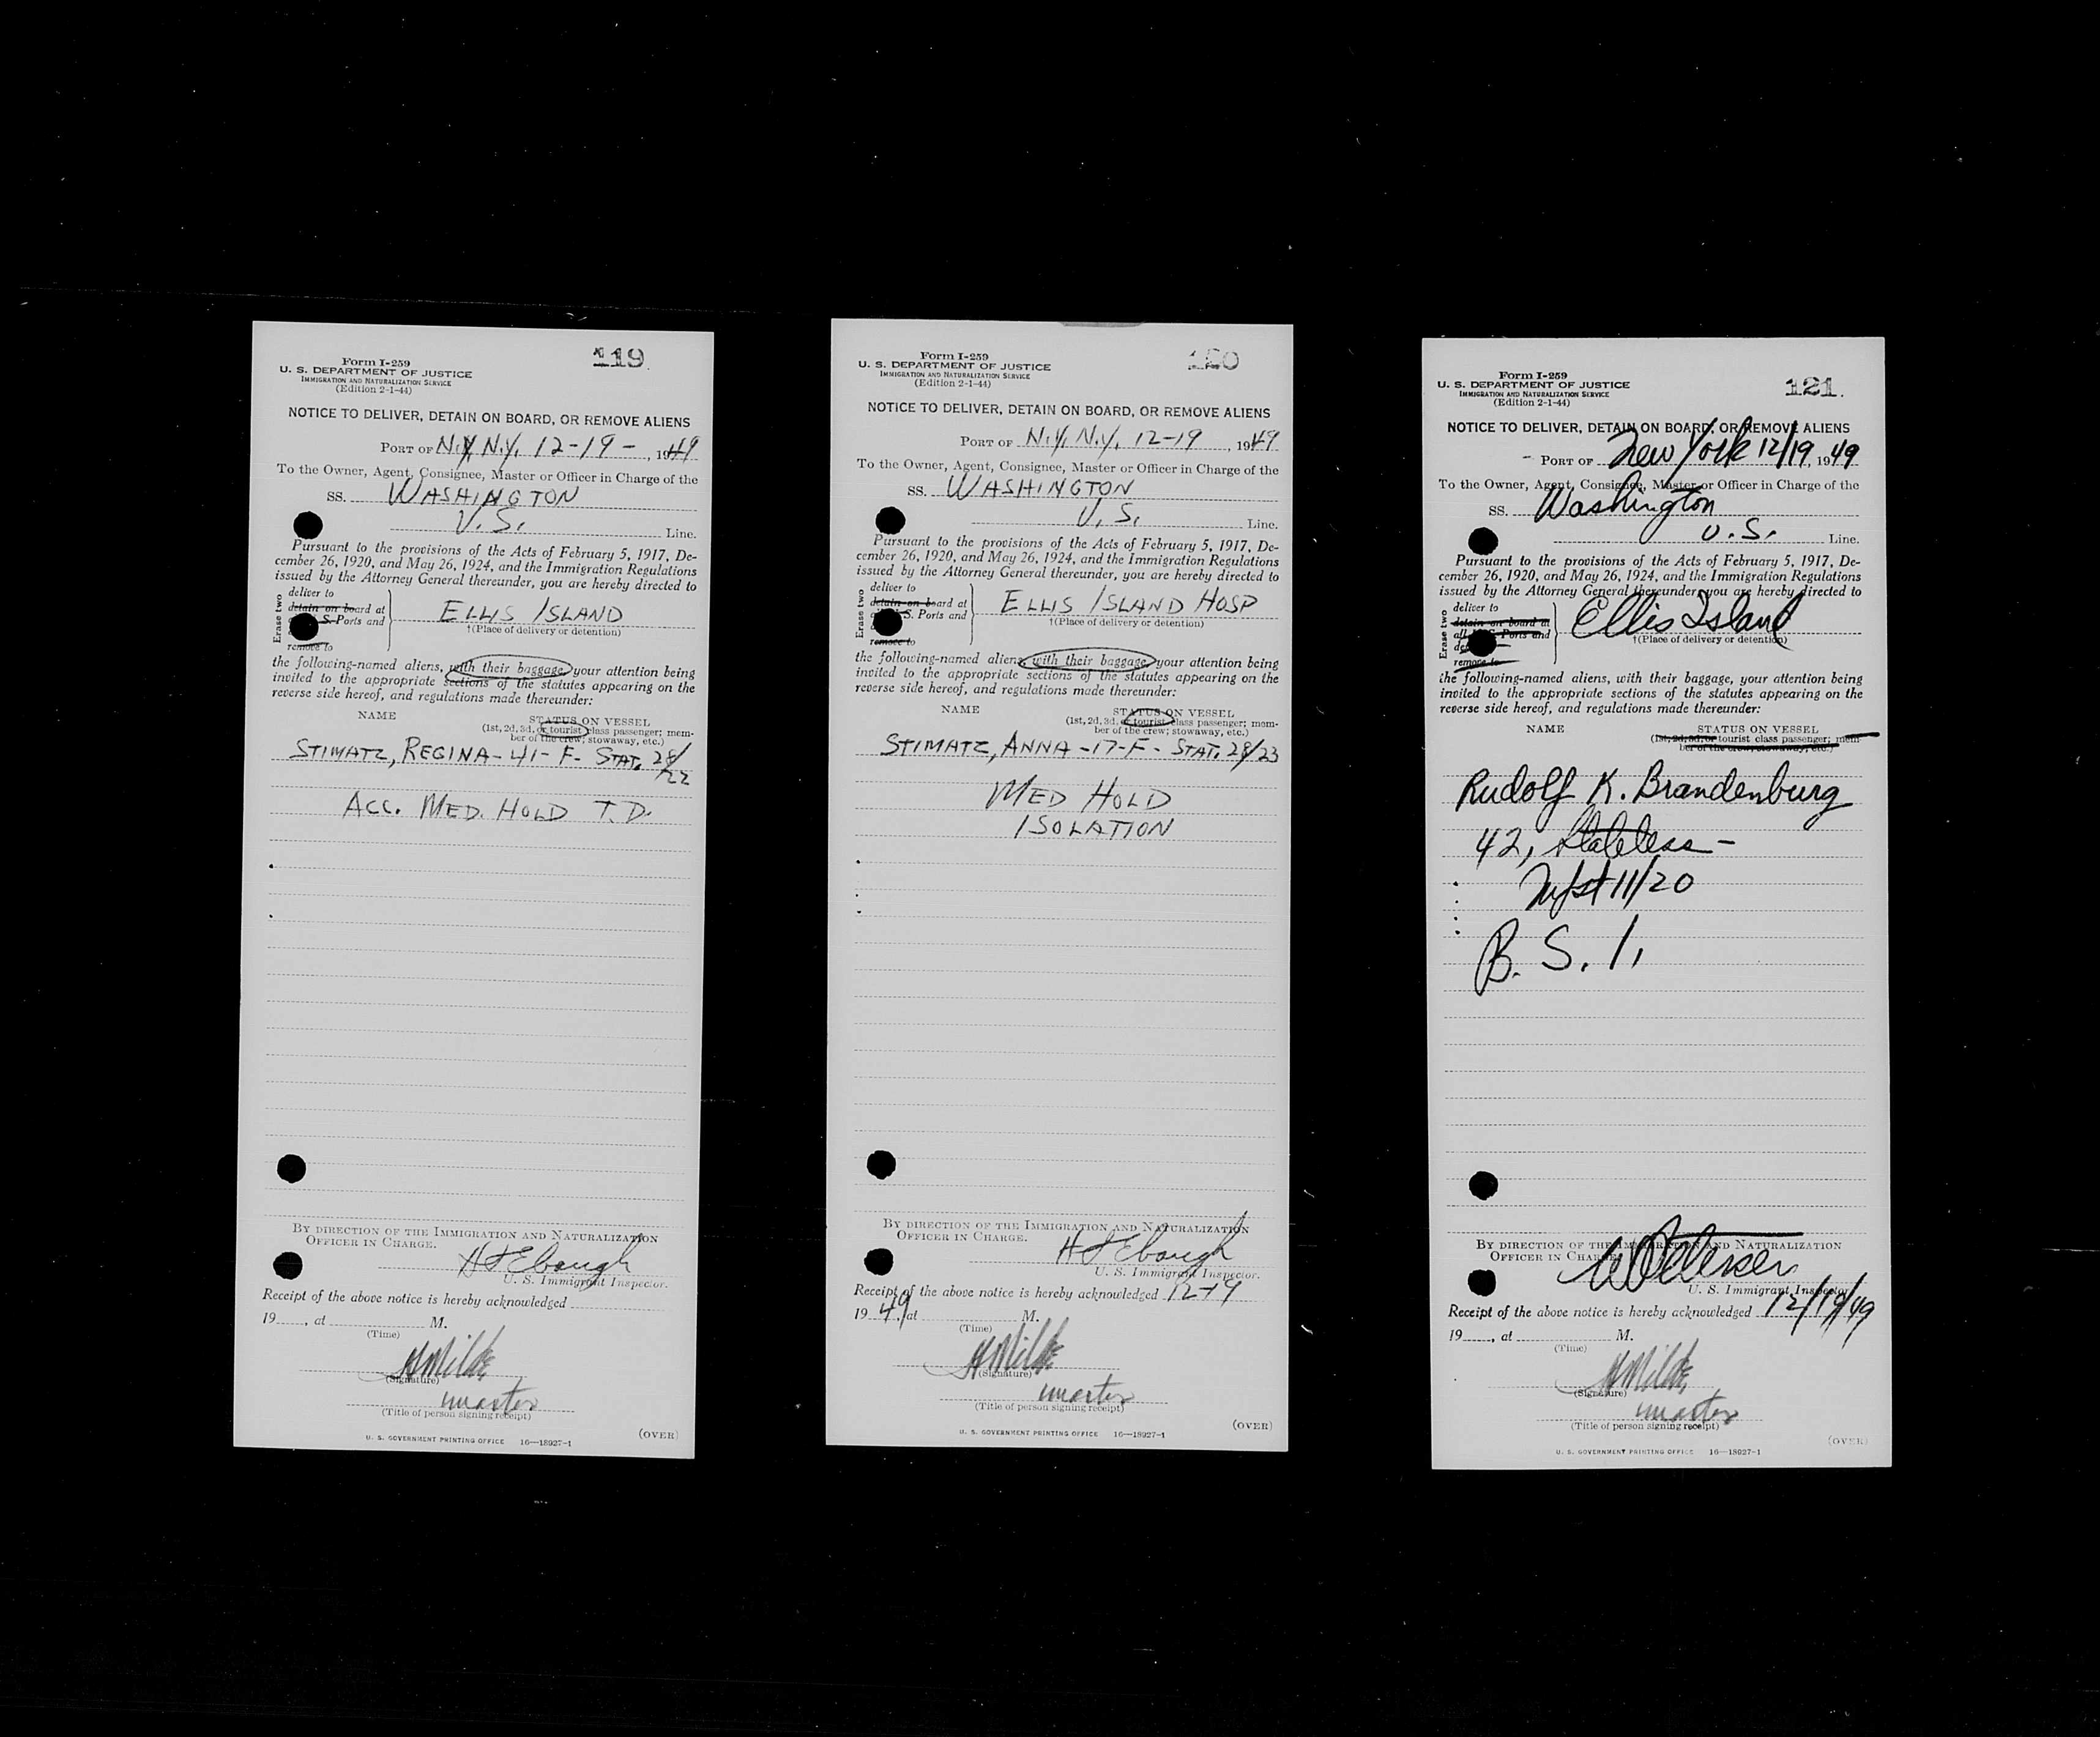 119.
Form I-259
U. S. DEPARTMENT OF JUSTICE
IMMIGRATION AND NATURALIZATION SERVICE
(Edition 2-1-44)
NOTICE TO DELIVER, DETAIN ON BOARD, OR REMOVE ALIENS
PORT OF N.Y. N.Y. 12-19-, 1949
To the Owner, Agent, Consignee, Master or Officer in Charge of the
SS. WASHINGTON
U.S. Line.
Pursuant to the provisions of the Acts of February 5, 1917, De-
cember 26, 1920, and May 26, 1924, and the Immigration Regulations
issued by the Attorney General thereunder, you are hereby directed to
Erase two
deliver to
detain on board at
S. Ports and
remove to
ELLIS ISLAND
†(Place of delivery or detention)
the following-named aliens, with their baggage, your attention being
invited to the appropriate sections of the statutes appearing on the
reverse side hereof, and regulations made thereunder:
NAME STATUS ON VESSEL
(1st, 2d, 3d, or tourist class passenger; mem-
ber of the crew; stowaway, etc.)
STIMATZ, REGINA - 41 - F - STAT. 28/22
ACC. MED. HOLD T.D.
BY DIRECTION OF THE IMMIGRATION AND NATURALIZATION
OFFICER IN CHARGE.
H Ebaugh
U. S. Immigrant Inspector.
Receipt of the above notice is hereby acknowledged
19, at M.
(Time)
(Signature)
master
(Title of person signing receipt)
U. S. GOVERNMENT PRINTING OFFICE 16—18927-1
(OVER)
120
Form I-259
U. S. DEPARTMENT OF JUSTICE
IMMIGRATION AND NATURALIZATION SERVICE
(Edition 2-1-44)
NOTICE TO DELIVER, DETAIN ON BOARD, OR REMOVE ALIENS
PORT OF N.Y. N.Y. 12-19, 1949
To the Owner, Agent, Consignee, Master or Officer in Charge of the
SS. WASHINGTON
U.S. Line.
Pursuant to the provisions of the Acts of February 5, 1917, De-
cember 26, 1920, and May 26, 1924, and the Immigration Regulations
issued by the Attorney General thereunder, you are hereby directed to
Erase two
deliver to
detain on board at
S. Ports and
remove to
ELLIS ISLAND HOSP
†(Place of delivery or detention)
the following-named aliens, with their baggage, your attention being
invited to the appropriate sections of the statutes appearing on the
reverse side hereof, and regulations made thereunder:
NAME STATUS ON VESSEL
(1st, 2d, 3d, or tourist class passenger; mem-
ber of the crew; stowaway, etc.)
STIMATZ, ANNA - 17 - F - STAT. 28/23
MED HOLD
ISOLATION
BY DIRECTION OF THE IMMIGRATION AND NATURALIZATION
OFFICER IN CHARGE.
H Ebaugh
U. S. Immigrant Inspector.
Receipt of the above notice is hereby acknowledged 12-19
1949, at M.
(Time)
(Signature)
master
(Title of person signing receipt)
U. S. GOVERNMENT PRINTING OFFICE 16—18927-1
(OVER)
121.
Form I-259
U. S. DEPARTMENT OF JUSTICE
IMMIGRATION AND NATURALIZATION SERVICE
(Edition 2-1-44)
NOTICE TO DELIVER, DETAIN ON BOARD, OR REMOVE ALIENS
PORT OF New York 12/19, 1949
To the Owner, Agent, Consignee, Master or Officer in Charge of the
SS. Washington
U.S. Line.
Pursuant to the provisions of the Acts of February 5, 1917, De-
cember 26, 1920, and May 26, 1924, and the Immigration Regulations
issued by the Attorney General thereunder, you are hereby directed to
Erase two
deliver to
detain on board at
all S. Ports and
remove to
Ellis Island
†(Place of delivery or detention)
the following-named aliens, with their baggage, your attention being
invited to the appropriate sections of the statutes appearing on the
reverse side hereof, and regulations made thereunder:
NAME STATUS ON VESSEL
(1st, 2d, 3d, or tourist class passenger; mem-
ber of the crew, stowaway, etc.)
Rudolf K. Brandenburg
42, Stateless -
11/20
B. S. I.
BY DIRECTION OF THE IMMIGRATION AND NATURALIZATION
OFFICER IN CHARGE.
U. S. Immigrant Inspector
Receipt of the above notice is hereby acknowledged 12/19/49
19, at M.
(Time)
(Signature)
master
(Title of person signing receipt)
U. S. GOVERNMENT PRINTING OFFICE 16—18927-1
(OVER)